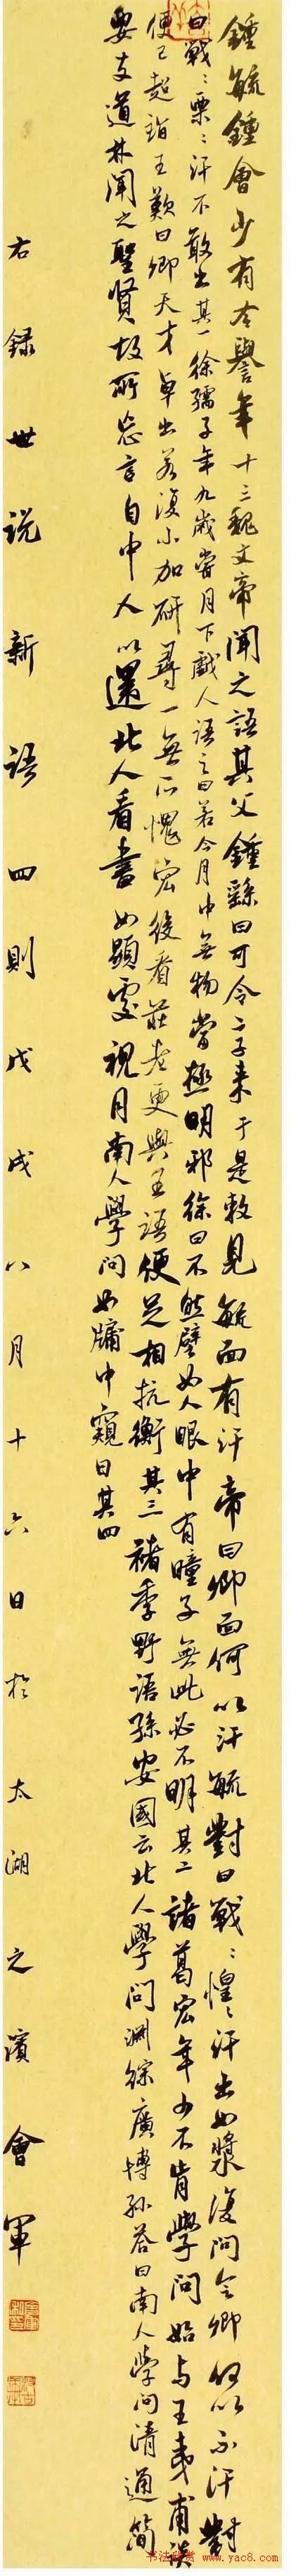 鍾毓鍾會少有令譽年十三魏文帝聞之語其父鍾繇曰可令二子来于是敕見毓面有汗帝曰卿面何以汗毓對曰戰〻惶〻汗出如漿復問會卿何以不汗對
曰戰〻栗〻汗不敢出其一徐孺子年九歲嘗月下戲人語之曰若令月中無物當極明邪徐曰不然譬如人眼中有瞳子無此必不明其二諸葛宏年少不肯學問始与王夷甫談
便已超詣王歎曰卿天才卓出若復小加研尋一無所愧宏後看莊老更與王語便足相抗衡其三褚季野語孫安國云北人學問淵綜廣博孫答曰南人學問清通簡
要支道林聞之聖賢故所忘言自中人以還北人看書如顯處視月南人學問如牖中窺日其四
右錄世说新语四則戊戌八月十六日於太湖之濱會軍
书法欣赏 www.yac8.com